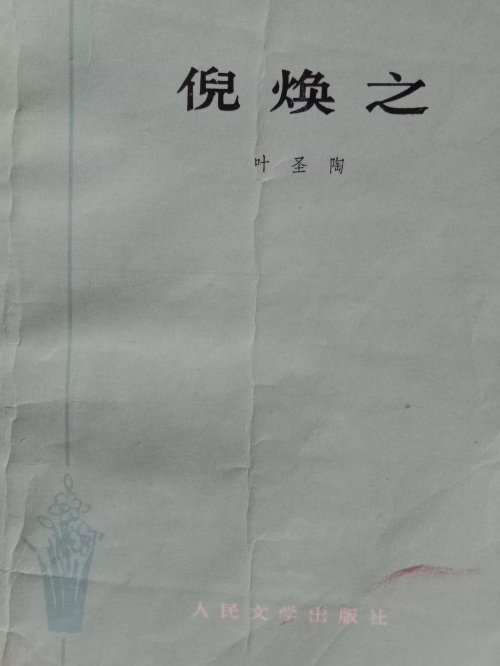 倪焕之
叶圣陶
人民文学出版社